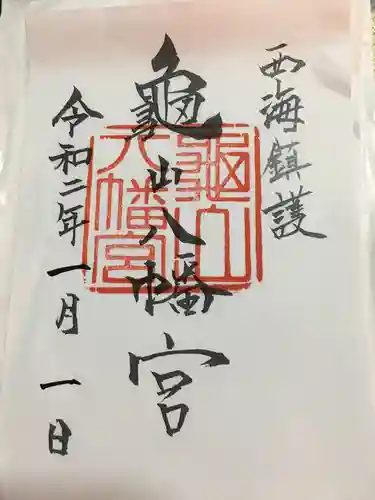 西海鎮護
龜山八幡宮
龜山
八幡宮
令和二年一月一日